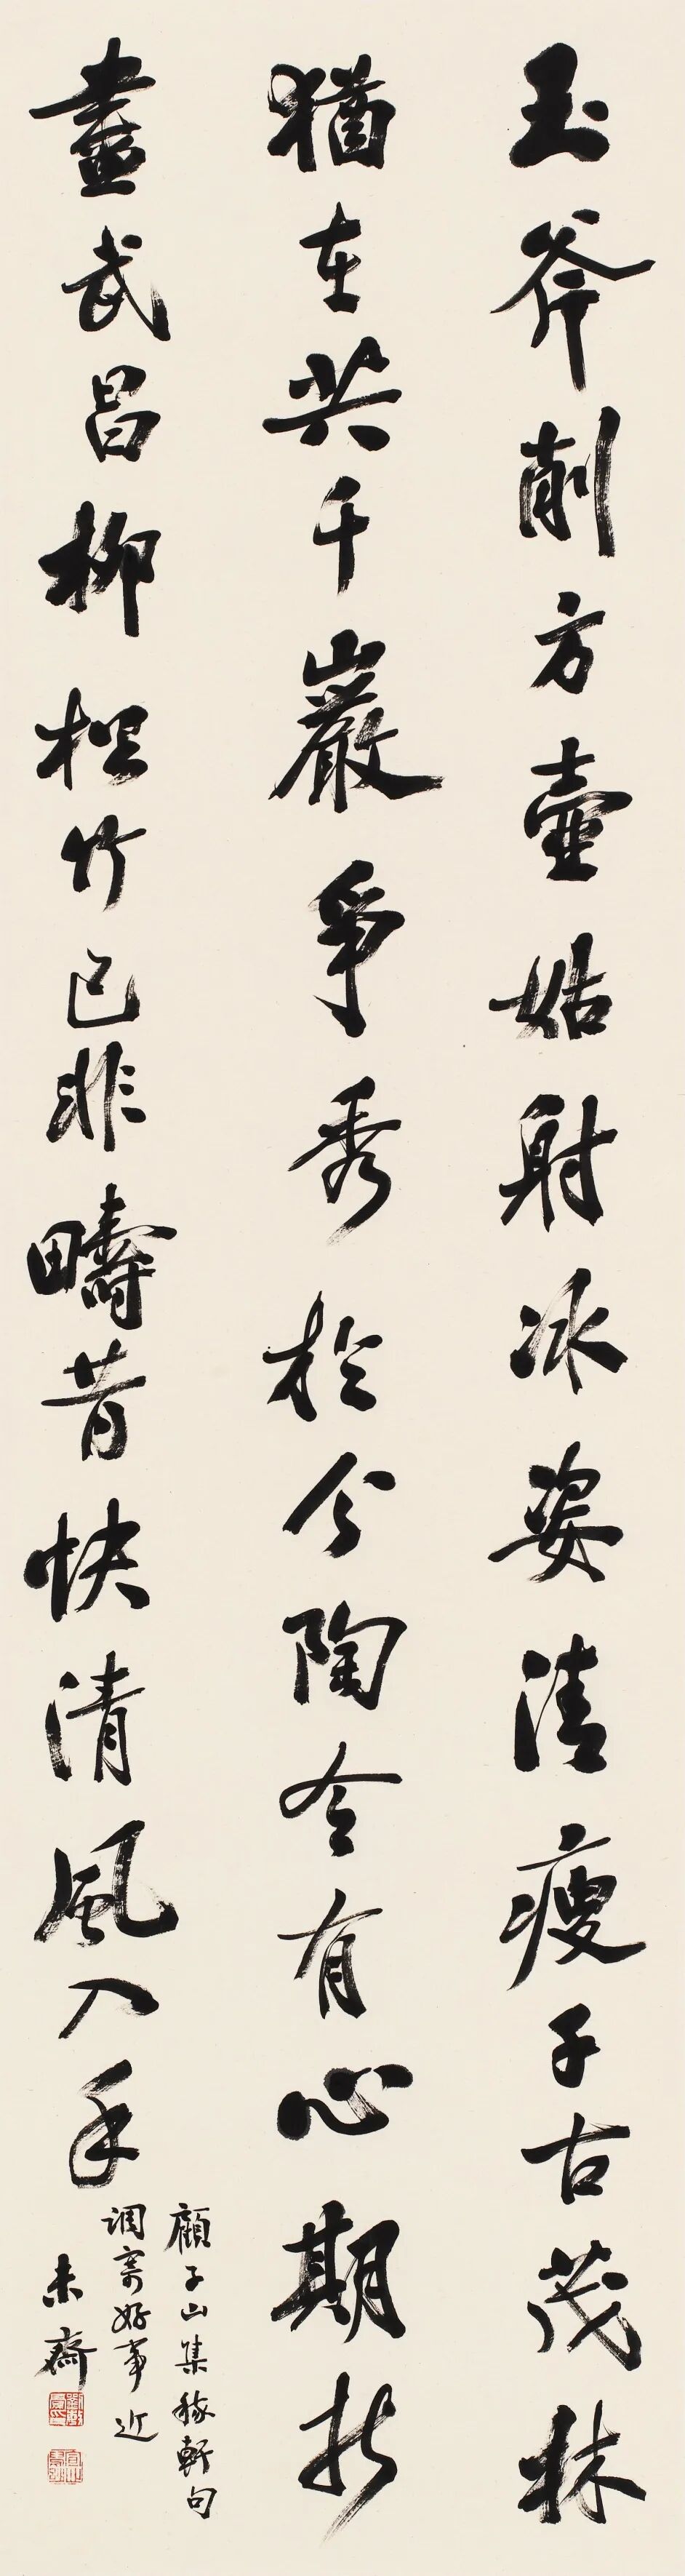 玉斧削方壺姑射冰姿清瘦子古茂林
猶在共千巖爭秀於今陶令有心期折
盡武昌柳松竹已非疇昔快清風入手
顧子山集稼軒句
調寄好事近
未齋